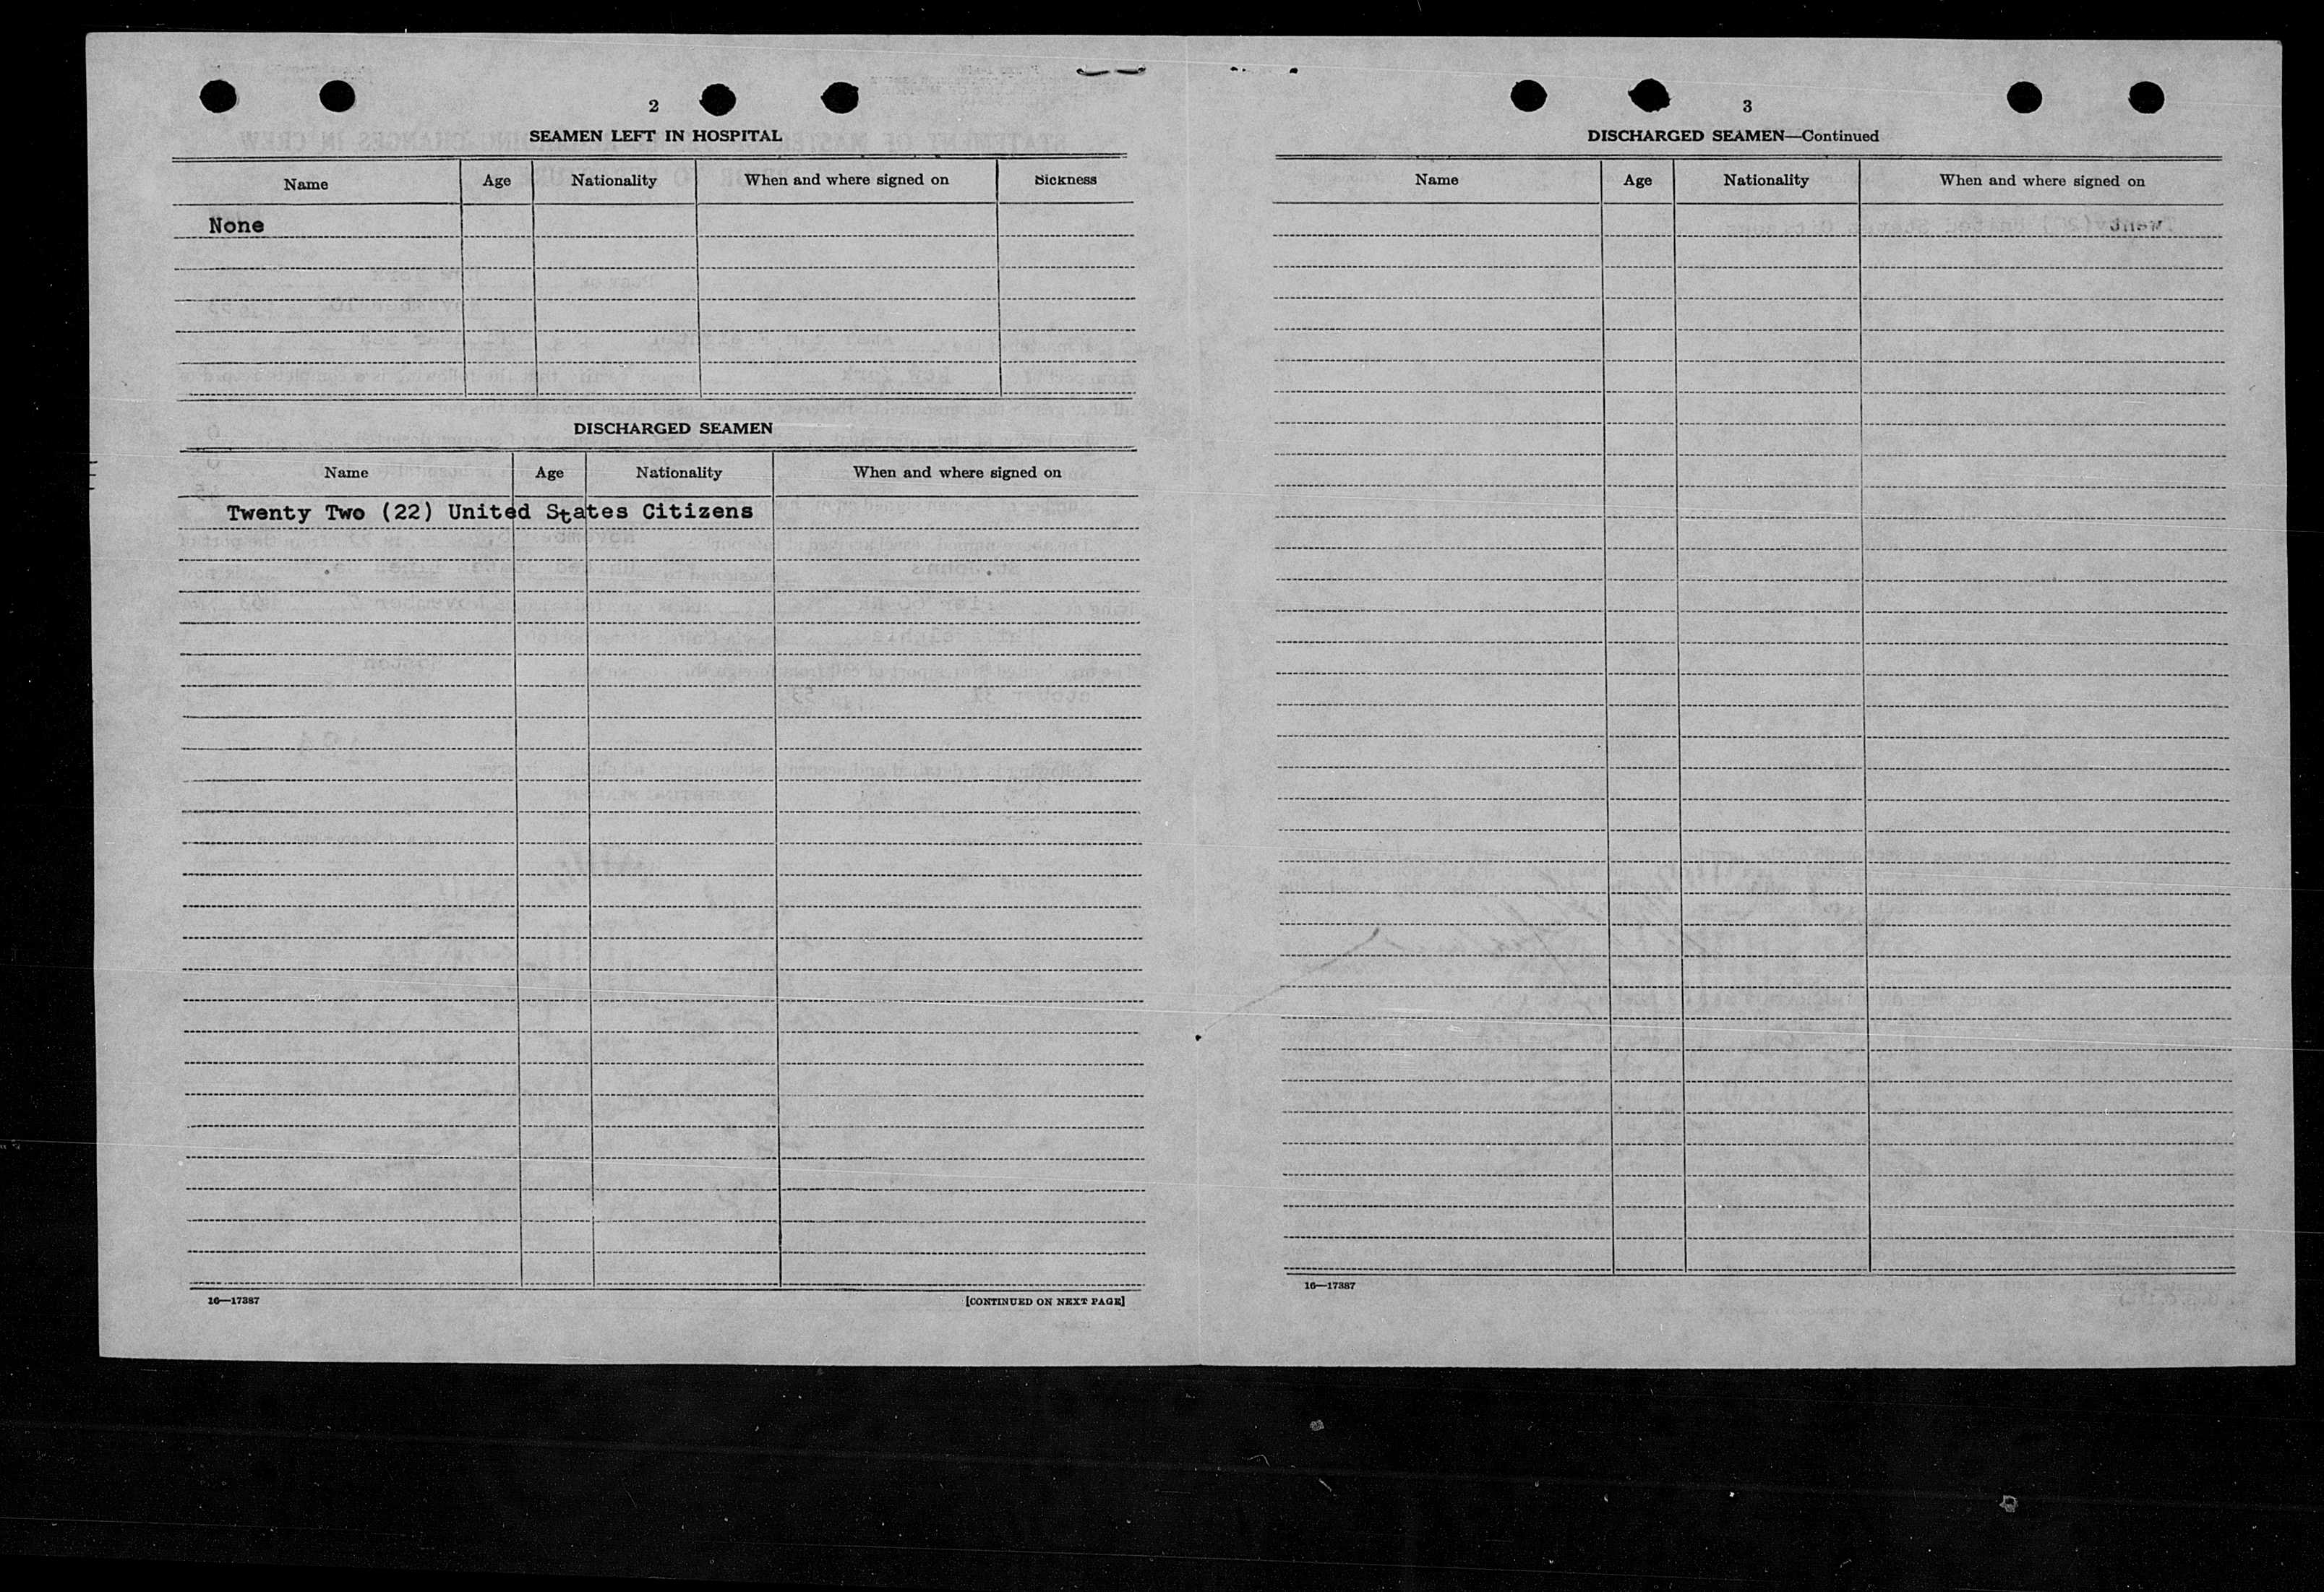 2
SEAMEN LEFT IN HOSPITAL
Name Age Nationality When and where signed on Sickness
None
DISCHARGED SEAMEN
Name Age Nationality When and where signed on
Twenty Two (22) United States Citizens
16—17387 [CONTINUED ON NEXT PAGE]
3
DISCHARGED SEAMEN—Continued
Name Age Nationality When and where signed on
16—17387